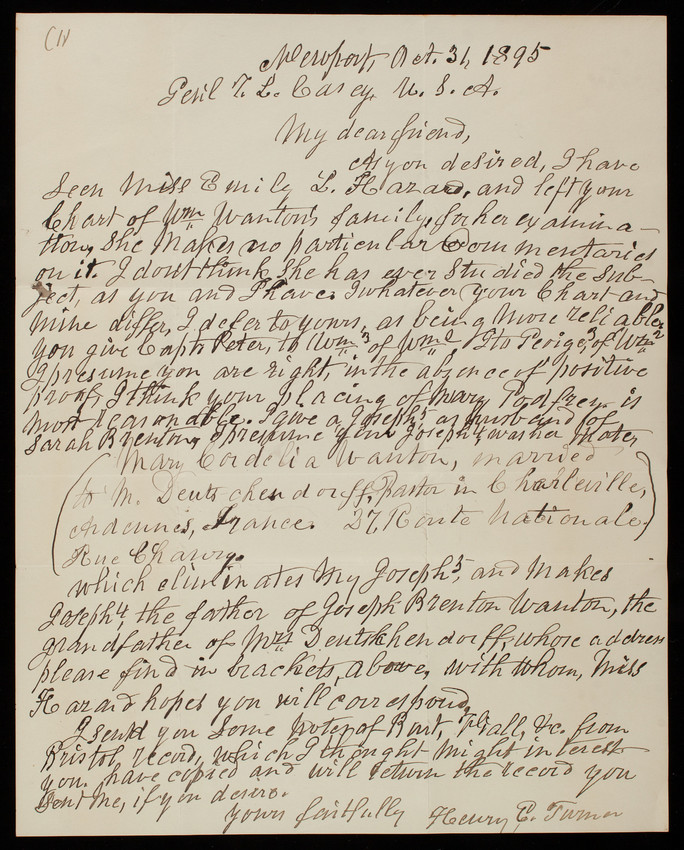 CW
Newport, Oct. 31, 1895
Genl T. L. Casey, U. S. A.
My dear friend,
As you desired, I have
seen Miss Emily L. Hazard, and left your
Chart of Wm Wanton's family, for her examina-
tion, She Makes no particular Commentaries
on it. I don't think she has ever studied the sub-
ject, as you and I have. In whatever your Chart and
mine differ, I defer to yours, as being more reliable,
you give Capt. Peter, to Wm 3 of Wm 2 I to 3, of Wm 2
I presume you are right, in the absence of positive
proof, I think your placing of Mary Godfrey is
most reasonable. I give a Joseph 5 as husband of
Sarah Brenton, I presume your Joseph 4
(Mary Cordelia Wanton, married
to M. Deutschendorff, Pastor in Charleville,
Ardennes, France. 27, Route Nationale,
Rue
which eliminates My Joseph 5, and makes
Joseph 4, the father of Joseph Brenton Wanton, the
grandfather of Mrs Deutschendorff, whose address
please find in brackets, above, with whom, Miss
Hazard hopes you will correspond,
I send you some notes of &c. from
Bristol record, which I thought might interest
you, have copied and will return the record you
sent me, if you desire.
yours faithfully Henry E. Turner